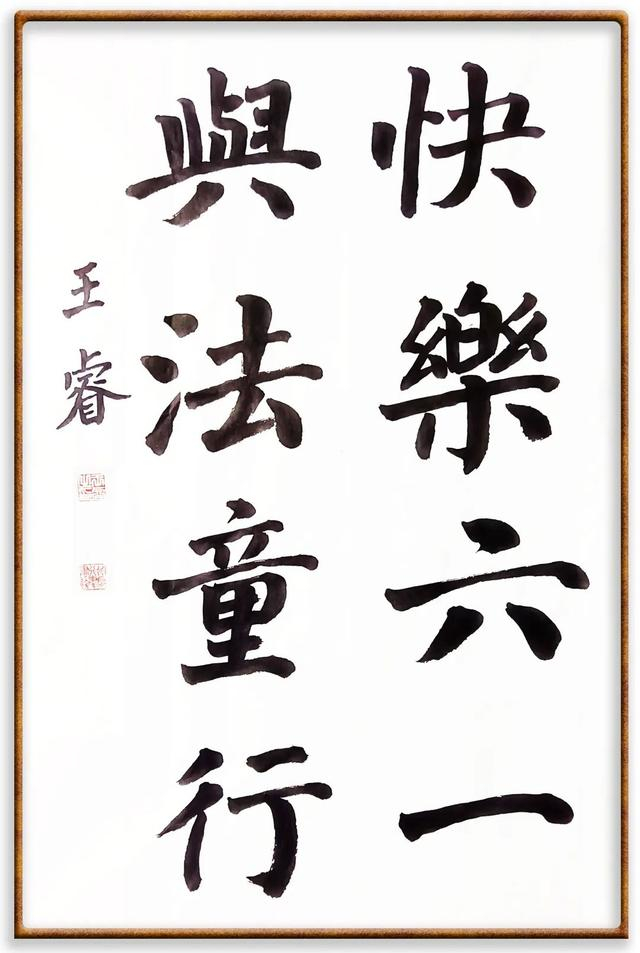 快樂六一
與法童行
王睿